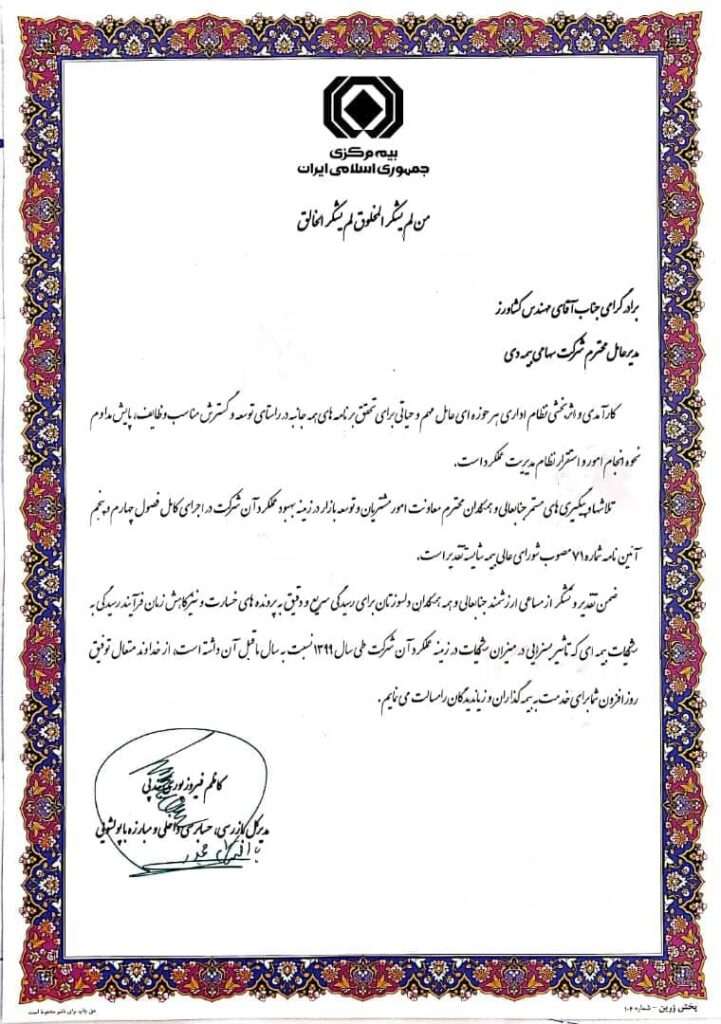 بیمه مرکزی
جمهوری اسلامی ایران
من لم یشکر المخلوق لم یشکر الخالق
برادر گرامی جناب آقای مهندس کشاورز
مدیرعامل محترم شرکت سهامی بیمه دی
کارآمدی و اثربخشی نظام اداری هر حوزه ای عامل مهم و حیاتی برای تحقق برنامه های همه جانبه در راستای توسعه و گسترش مناسب وظایف، پایش مداوم
نحوه انجام امور و استقرار نظام مدیریت عملکرد است.
تلاشها و پیگیری های مستمر جنابعالی و همکاران محترم معاونت امور مشتریان و توسعه بازار در زمینه بهبود عملکرد آن شرکت در اجرای کامل فصول چهارم و پنجم
آئین نامه شماره ۷۱ مصوب شورای عالی بیمه شایسته تقدیر است.
ضمن تقدیر و تشکر از مساعی ارزشمند جنابعالی و همه همکاران دلسوزتان برای رسیدگی سریع و دقیق به پرونده های خسارت و نیز کاهش زمان فرآیند رسیدگی به
شکایات بیمه ای که تاثیر بسزایی در میزان شکایات در زمینه عملکرد آن شرکت طی سال ۱۳۹۹ نسبت به سال ماقبل آن داشته است، از خداوند متعال توفیق
روز افزون شما برای خدمت به بیمه گذاران و زیاندیدگان را مسالت می نمایم.
کاظم فیروزپوری
مدیرکل بازرسی، حسابرسی داخلی و مبارزه با پولشویی
پخش زرین - شماره ۱۰۴
حق چاپ برای ناشر محفوظ است